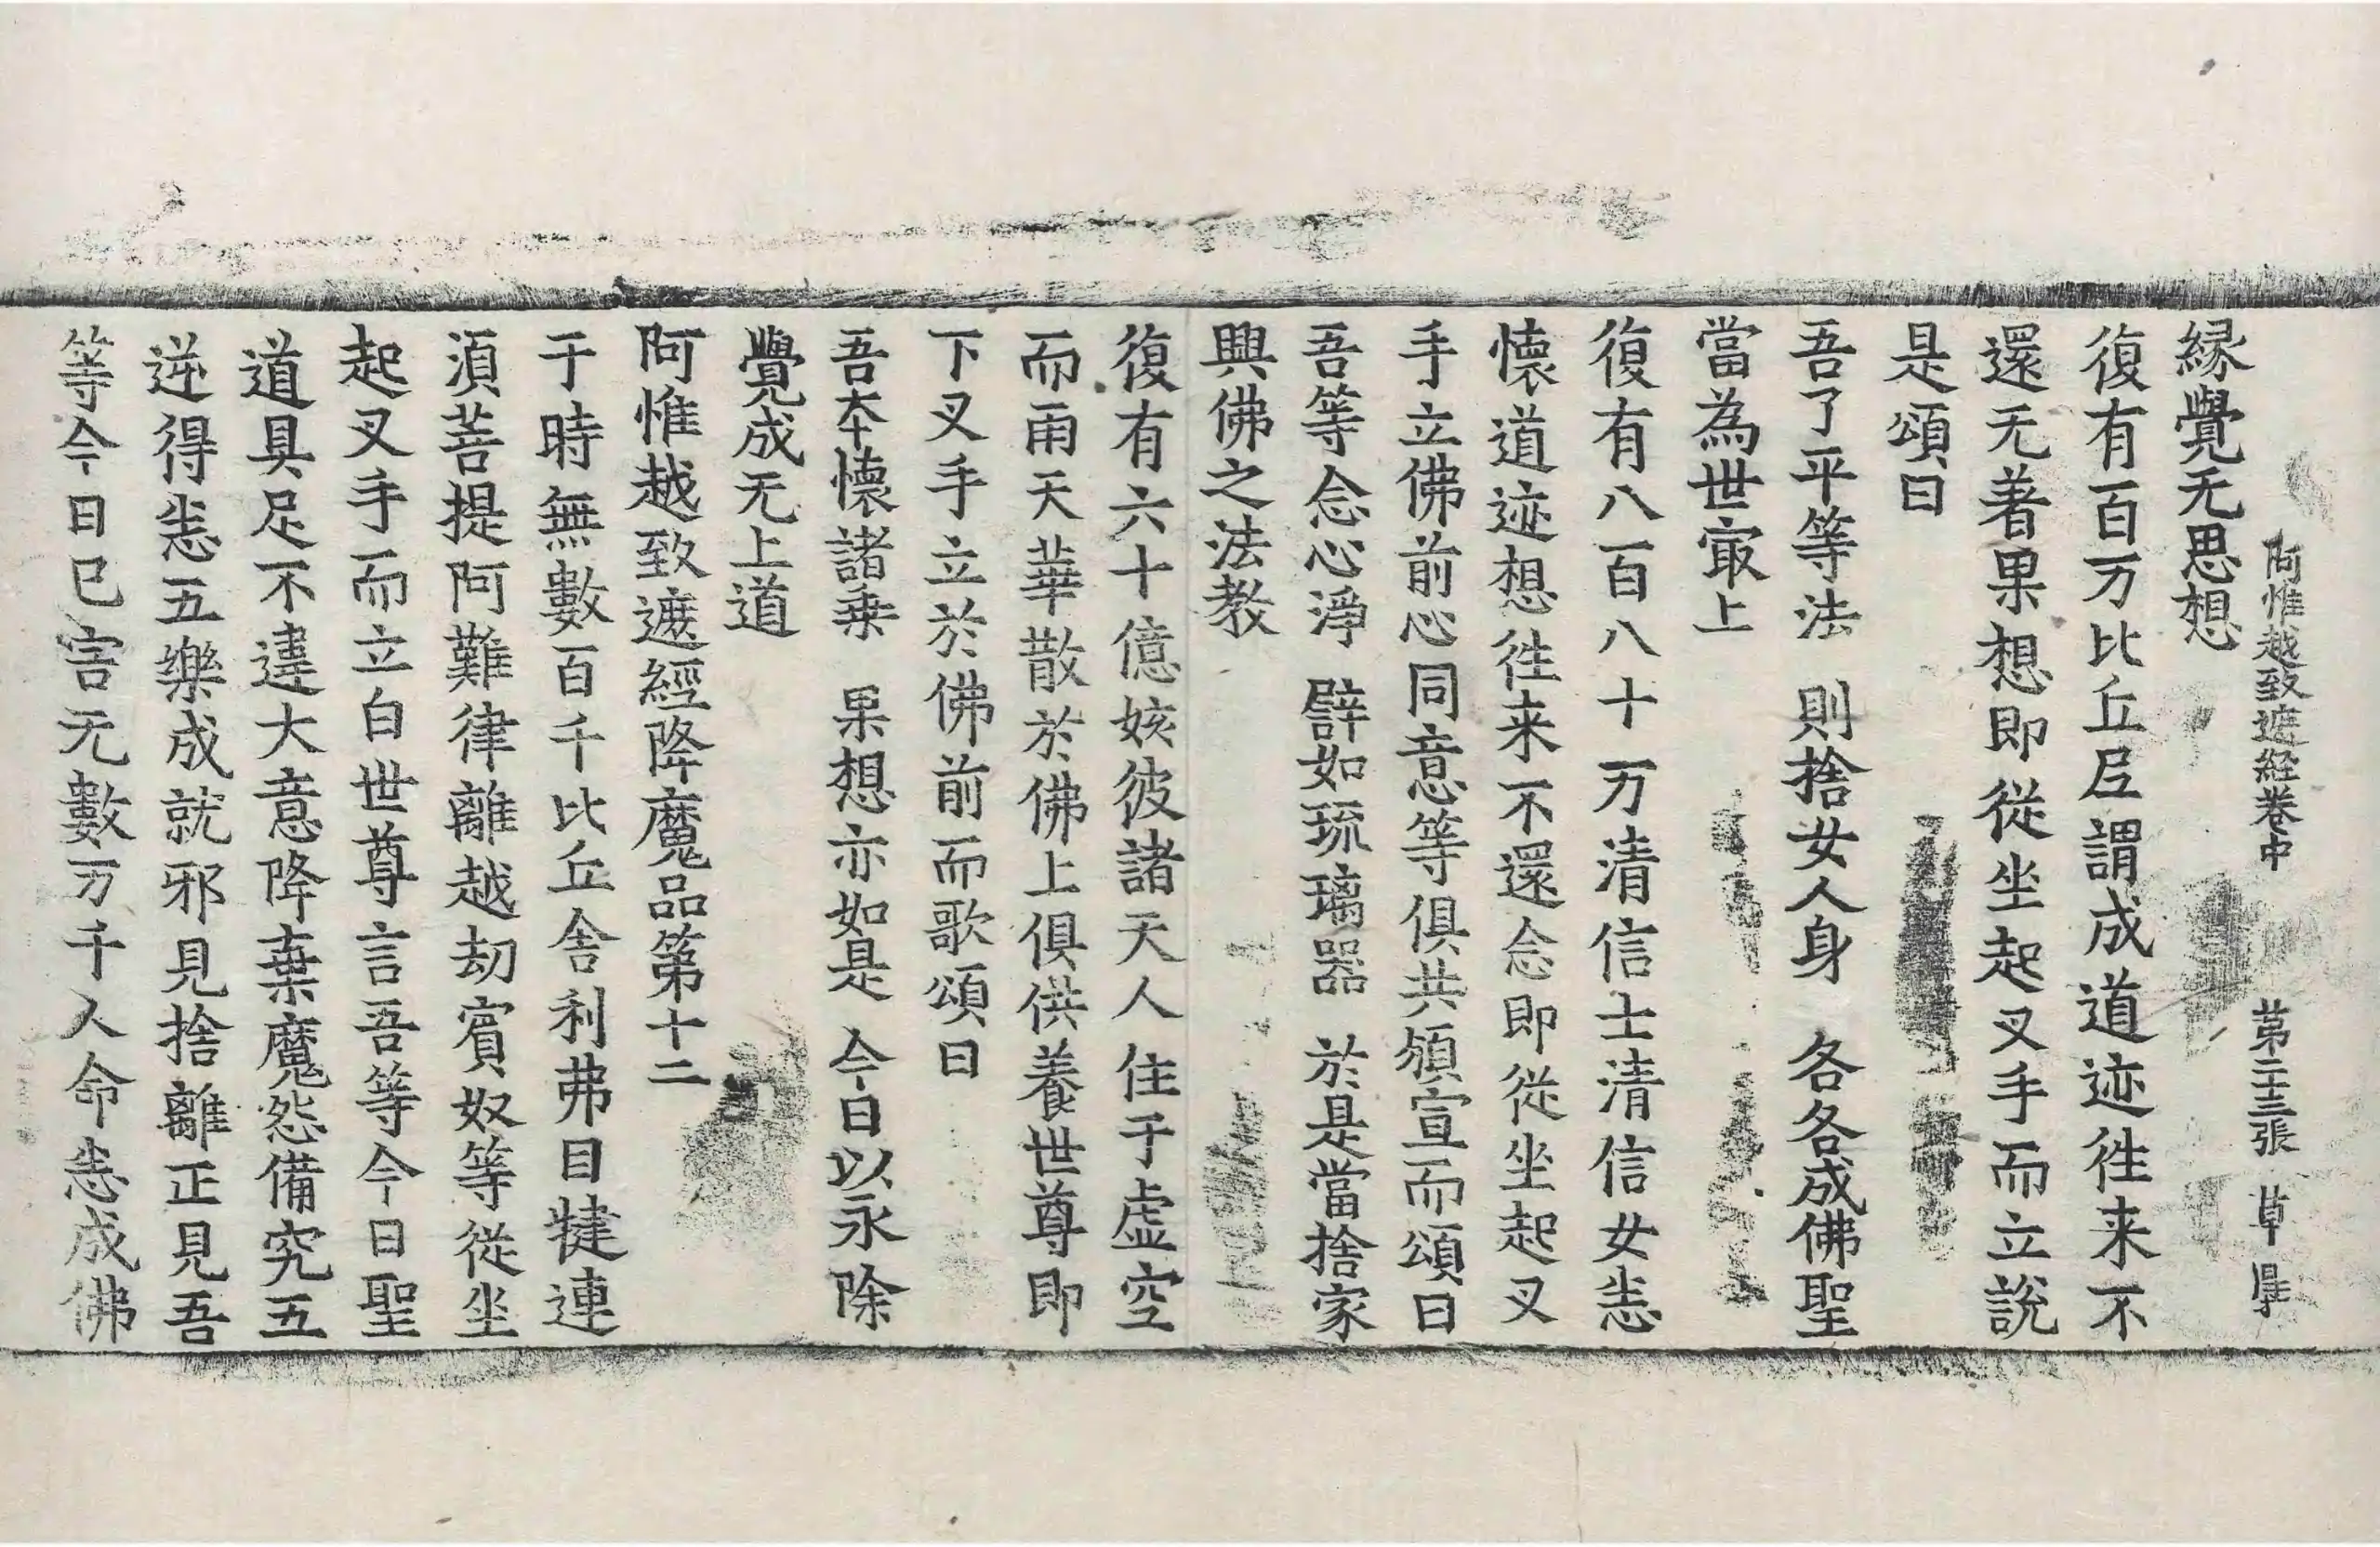 阿惟越致遮経卷中 苐二十三張 草
緣覺无思想
復有百万比丘𡰱謂成道迹徃来不
還无著果想即從坐起叉手而立說
是頌曰
吾了平等法 則捨女人身 各各成佛聖
當為世㝡上
復有八百八十万清信士清信女悉
懷道迹想徃来不還念即從坐起叉
手立佛前心同意等俱共頒宣而頌曰
吾等念心淨 譬如琉璃器 於是當捨家
興佛之法教
復有六十億姟彼諸天人住于虛空
而雨天華散於佛上俱供養世尊即
下叉手立於佛前而歌頌曰
吾本懷諸乗 果想亦如是 今日以永除
覺成无上道
阿惟越致遮經降魔品第十二
于時無數百千比丘舎利弗目揵連
湏菩提阿難律離越劫賓奴等從坐
起叉手而立白世尊言吾等今日聖
道具足不違大意降棄魔怨備究五
逆得悉五樂成就邪見捨離正見吾
等今日已害无數万千人命悉成佛